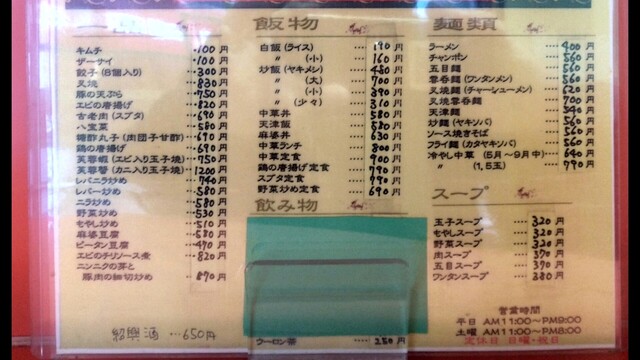 キムチ ‥‥100円
ザーサイ ‥‥100円
餃子(8個入り) ‥‥300円
叉焼 ‥‥830円
豚の天ぷら ‥‥750円
エビの唐揚げ ‥‥820円
古老肉(スブタ) ‥‥690円
八宝菜 ‥‥580円
糖酢丸子(肉団子甘酢) ‥‥690円
鶏の唐揚げ ‥‥690円
芙蓉蝦(エビ入り玉子焼) ‥‥750円
芙蓉蟹(カニ入り玉子焼) ‥‥1200円
レバニラ炒め ‥‥740円
レバー炒め ‥‥580円
ニラ炒め ‥‥580円
野菜炒め ‥‥530円
もやし炒め ‥‥510円
麻婆豆腐 ‥‥580円
ピータン豆腐 ‥‥470円
エビのチリソース煮 ‥‥820円
ニンニクの芽と
豚肉の細切炒め ‥‥870円
紹興酒 ‥‥650円
飯物
白飯(ライス) ‥‥190円
〃 (小) ‥‥160円
炒飯(ヤキメシ) ‥‥480円
〃 (大) ‥‥700円
〃 (小) ‥‥390円
〃 (少々) ‥‥310円
中華丼 ‥‥580円
天津飯 ‥‥580円
麻婆丼 ‥‥630円
中華ランチ ‥‥800円
中華定食 ‥‥900円
鶏の唐揚げ定食 ‥‥790円
スブタ定食 ‥‥790円
野菜炒め定食 ‥‥690円
飲み物
ウーロン茶 ‥‥250円
麺類
ラーメン ‥‥400円
チャンポン ‥‥560円
五目麺 ‥‥560円
雲呑麺(ワンタンメン) ‥‥560円
叉焼麺(チャーシューメン) ‥‥620円
叉焼雲呑麺 ‥‥700円
天津麺 ‥‥540円
炒麺(ヤキソバ) ‥‥560円
ソース焼きそば ‥‥560円
フライ麺(カタヤキソバ) ‥‥560円
冷やし中華 (5月〜9月中) ‥‥640円
〃 (1,5玉) ‥‥790円
スープ
玉子スープ ‥‥320円
もやしスープ ‥‥320円
野菜スープ ‥‥320円
肉スープ ‥‥370円
五目スープ ‥‥370円
ワンタンスープ ‥‥380円
営業時間
平日 AM11:00〜PM9:00
土曜 AM11:00〜PM8:00
定休日 日曜・祝日